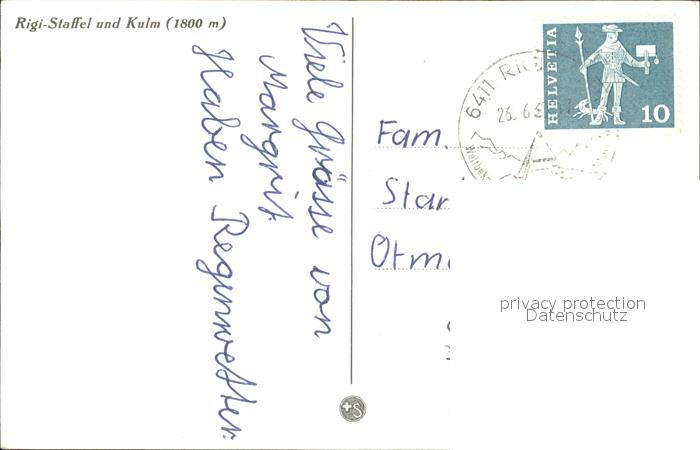 Rigi-Staffel und Kulm (1800 m)
Viele Grüsse von
Margrit.
Haben Regenwetter.
HELVETIA
10
6411 RIG
Fam.
Otm
+S
privacy protection
Datenschutz